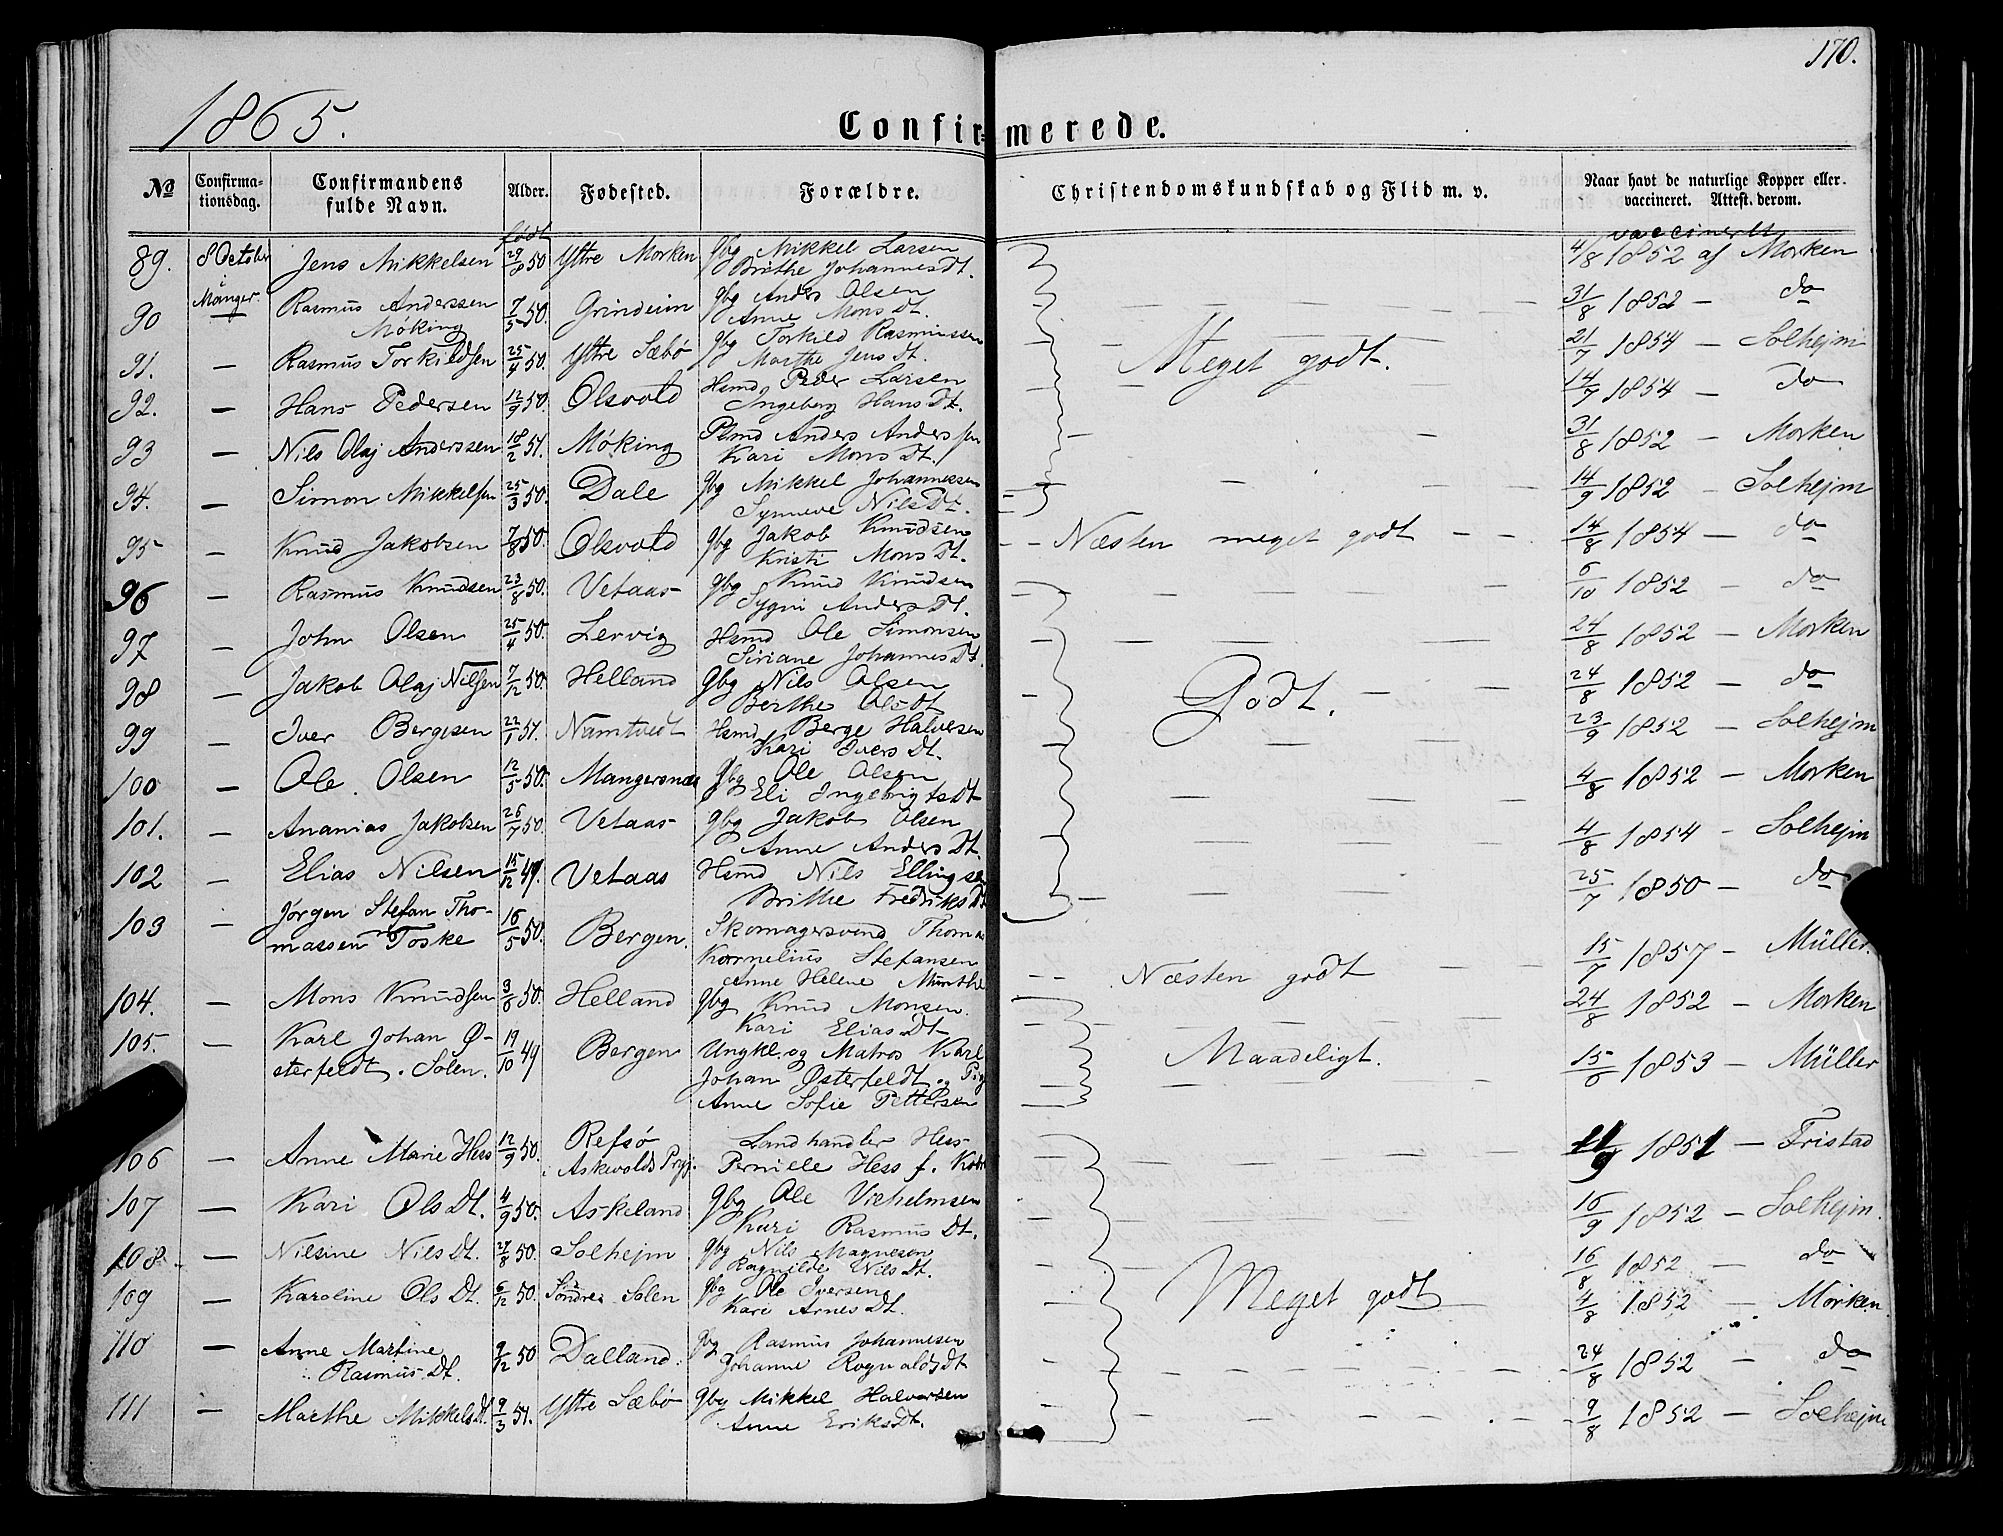 170.
1865.
Confirmerede.
No Confirmationsdag. Confirmandens fulde Navn. Alder. Fødested. Forældre. Christendomskundskab og Flid m. v. Naar havt de naturlige Kopper eller vaccineret. Attest. derom.
født vaccineret
89. 8 October Jens Mikkelsen 29/8 50 Ytre Morken Gbg Mikkel Larsen 4/8 1852 af Morken
Brithe Johannes Dt.
90 Manger Rasmus Anderssen 7/5 50. Grindeim Gbg Anders Olsen 31/8 1852 — do
Møking Anne Mons Dt.
91. — Rasmus Torkildsen 25/4 50. Ytre Sæbø Gbg Torkild Rasmussen Meget godt. 21/7 1854 — Solhejm
Marthe Jens Dt.
92. — Hans Pedersen 12/9 50. Olsvold Hsmd Peder Larsen 14/7 1854 — do
Ingeberg Hans Dt.
93 — Nils Olaj Anderssen 18/2 51. Møking Plsmd Anders Anderssen 31/8 1852 — Morken
Kari Mons Dt.
94. — Simon Mikkelsen 25/3 50. Dale Gbg Mikkel Johannessen 14/9 1852 — Solhejm
Synneve Nils Dt.
95 — Knud Jakobsen 7/8 50. Olsvold Gbg Jakob Knudsen Næsten meget godt 14/8 1854 — do
Kristi Mons Dt.
96 — Rasmus Knudsen 23/8 50. Vetaas Gbg Knud Knudsen 6/10 1852 — do
Sygni Anders Dt.
97 — John Olsen 25/4 50. Lervig Hsmd Ole Simonsen 24/8 1852 — Morken
Siriane Johannes Dt.
98 — Jakob Olaj Nilsen 7/12 50. Helland Gbg Nils Olsen Godt. 24/8 1852 — do
Berthe Ols Dt
99 — Iver Bergesen 22/1 51. Namtvedt Hsmd Berge Halversen 23/9 1852 — Solhejm
Kari Ivers Dt.
100 — Ole Olsen 12/5 50. Mangersnæs Gbg Ole Olsen 4/8 1852 — Morken
Eli Ingebrigts Dt
101. — Ananias Jakobsen 26/7 50. Vetaas Gbg Jakob Olsen 4/8 1854 — Solhejm
Anne Anders Dt.
102 — Elias Nilsen 15/12 49. Vetaas Hsmd Nils Ellingsen 25/7 1850 — do
Brithe Fredriks Dt
103 — Jørgen Stefan Tho- 16/5 50. Bergen. Skomagersvend Thomas 15/7 1857 — Müller.
massen Toske Kornelius Stefansen
Anne Helene Munthe Næsten godt
104. — Mons Knudsen 3/6 50. Helland Gbg Knud Monsen. 24/8 1852 — Morken
Kari Elias Dt
105. — Karl Johan Ø- 19/10 49 Bergen Ungkl. og Matros Karl Maadeligt. 15/6 1853 — Müller
sterfeldt. Solen. Johan Østerfeldt og Pig
Anne Sofie Pettersen
106 — Anne Marie Hess 12/9 50. Refsø Landhandler Hess 11/9 1851 — Fristad
i Askevolds Prgj. Perniele Hess f.
107 — Kari Ols Dt. 4/9 50. Askeland Gbg Ole Vilhelmsen 16/9 1852 — Solhejm.
Kari Rasmus Dt.
108 — Nilsine Nils Dt. 27/8 50. Solhejm Gbg Nils Magnesen 16/8 1852 — do
Ragnilde Nils Dt.
109 — Karoline Ols Dt. 6/12 50. Søndre Solen Gbg Ole Iversen Meget godt 4/8 1852 — Morken
Kari Arnes Dt.
110 — Anne Martine 9/12 50 Dalland. Gbg Rasmus Johannesen 24/8 1852 — do
Rasmus Dt. Johanne Rognalds Dt
111 — Marthe Mikkels Dt. 9/3 51. Ytre Sæbø Gbg Mikkel Halversen 9/8 1852 — Solhejm
Anne Eriks Dt.